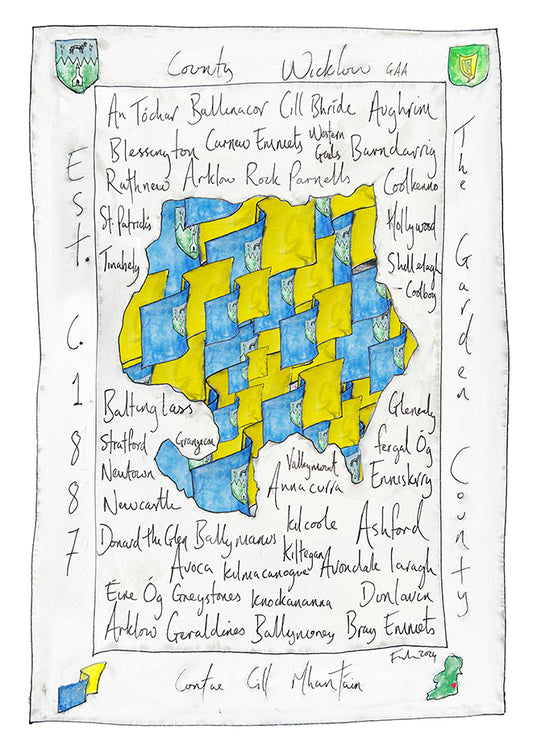 County Wicklow GAA
Est. C. 1887
An Tóchar Ballinacor Cill Bhríde Aughrim
Blessington Carnew Emmets Western Gaels Barndarrig
Rathnew Arklow Rock Parnells Coolkenno
St. Patrick's
Hollywood
Tinahely
Shillelagh - Coolboy
The Garden County
Baltinglass
Glenealy
Stratford Grangecon
Fergal Óg
Newtown
Valleymount
Enniskerry
Annacurra
Newcastle
Kilcoole Ashford
Donard the Glen Ballymanus
Kiltegan
Avoca Kilmacanogue Avondale Laragh
Éire Óg Greystones Knockananna Donlavin
Arklow Geraldines Ballymoney Bray Emmets
2024
Contae Cill Mhantáin